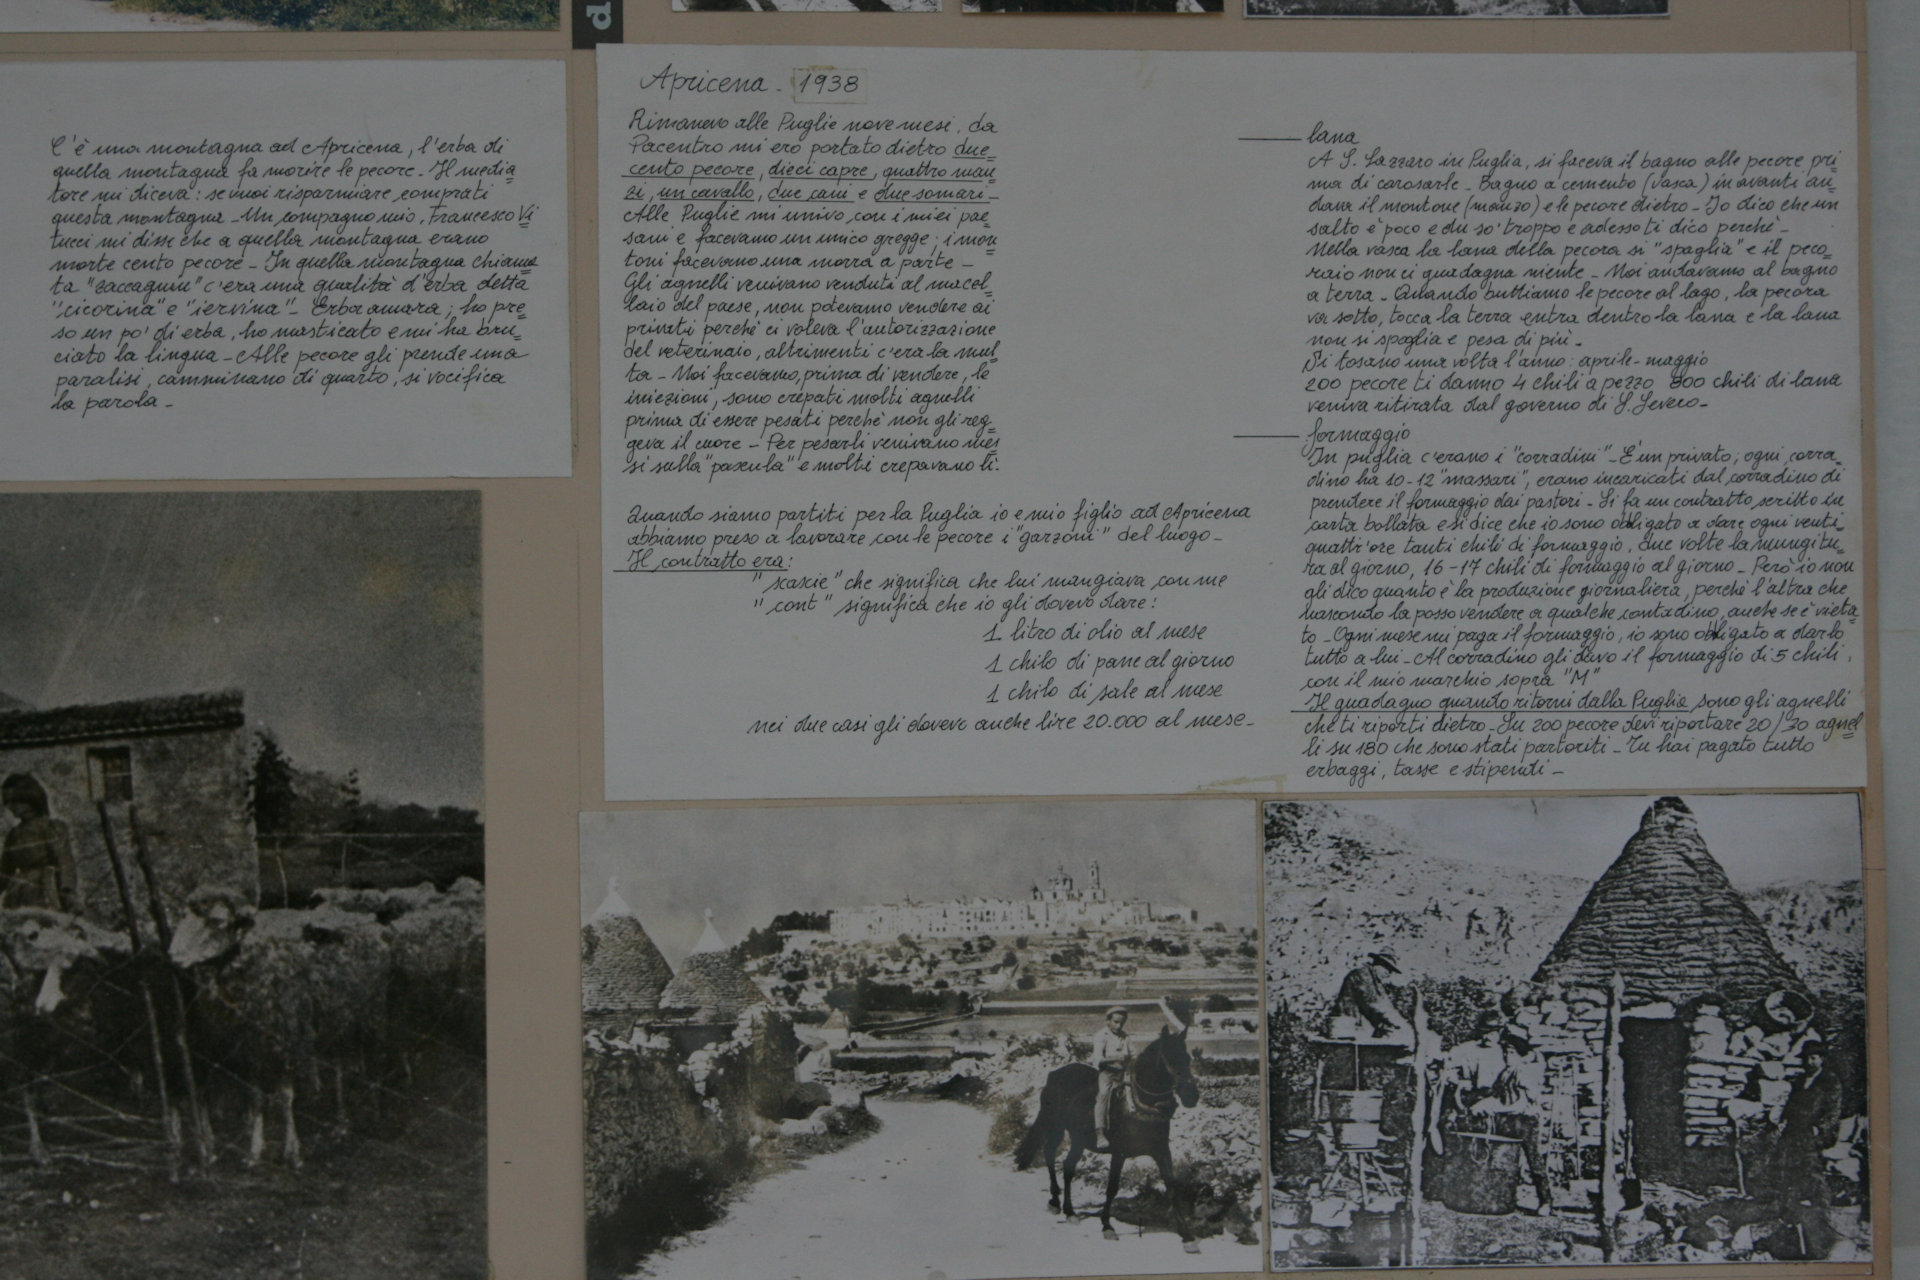 d
C'è una montagna ad Apricena, l'erba di
quella montagna fa morire le pecore - Il media=
tore mi diceva: se vuoi risparmiare comprati
questa montagna - Un compagno mio, Francesco Vi
tucci mi disse che a quella montagna erano
morte cento pecore - In quella montagna chiama
ta "zaccagnin" c'era una qualità d'erba detta
"cicorina" e "iervina" - Erba amara; ho pre=
so un po' di erba, ho masticato e mi ha bru=
ciato la lingua - Alle pecore gli prende una
paralisi, camminano di quarto, si vocifica
la parola -
Apricena - 1938
Rimanevo alle Puglie nove mesi, da
Pacentro mi ero portato dietro due=
cento pecore, dieci capre, quattro man=
zi, un cavallo, due cani e due somari -
Alle Puglie mi univo con i miei pae=
sani e facevamo un unico gregge; i mon=
toni facevamo una morra a parte -
Gli agnelli venivano venduti al macel=
laio del paese, non potevamo vendere ai
privati perché ci voleva l'autorizzazione
del veterinaio, altrimenti c'era la mul=
ta - Noi facevamo, prima di vendere, le
iniezioni, sono crepati molti agnelli
prima di essere pesati perchè non gli reg=
geva il cuore - Per pesarli venivano mes=
si sulla "pascula" e molti crepavano lì.
Quando siamo partiti per la Puglia io e mio figlio ad Apricena
abbiamo preso a lavorare con le pecore i "garzoni" del luogo -
Il contratto era:
"scascie" che significa che lui mangiava con me
"cont" significa che io gli dovevo dare:
1 litro di olio al mese
1 chilo di pane al giorno
1 chilo di sale al mese
nei due casi gli dovevo anche lire 20.000 al mese -
lana
A S. Lazzaro in Puglia, si faceva il bagno alle pecore pri=
ma di carosarle - Bagno a cemento (vasca) in avanti an=
dava il montone (manzo) e le pecore dietro - Io dico che un
salto è poco e du so' troppo e adesso ti dico perchè -
Nella vasca la lana della pecora si "spaglia" e il peco=
raio non ci guadagna niente - Noi andavamo al bagno
a terra - Quando buttiamo le pecore al lago, la pecora
va sotto, tocca la terra entra dentro la lana e la lana
non si spaglia e pesa di più -
Si tosano una volta l'anno: aprile - maggio
200 pecore ti danno 4 chili a pezzo 800 chili di lana
veniva ritirata dal governo di S. Severo -
formaggio
In puglia c'erano i "corradini" - È un privato; ogni corra=
dino ha 10-12 "massari", erano incaricati dal corradino di
prendere il formaggio dai pastori - Si fa un contratto scritto in
carta bollata e si dice che io sono obbligato a dare ogni venti
quattr'ore tanti chili di formaggio, due volte la mungitu=
ra al giorno, 16-17 chili di formaggio al giorno - Però io non
gli dico quanto è la produzione giornaliera, perchè l'altra che
nascondo la posso vendere a qualche contadino, anche se è vieta=
to - Ogni mese mi paga il formaggio, io sono obbligato a darlo
tutto a lui - Al corradino gli davo il formaggio di 5 chili,
con il mio marchio sopra "M"
Il guadagno quando ritorni dalla Puglia sono gli agnelli
che ti riporti dietro - Su 200 pecore devi riportare 20/30 agnel=
li su 180 che sono stati partoriti - Tu hai pagato tutto
erbaggi, tasse e stipendi -